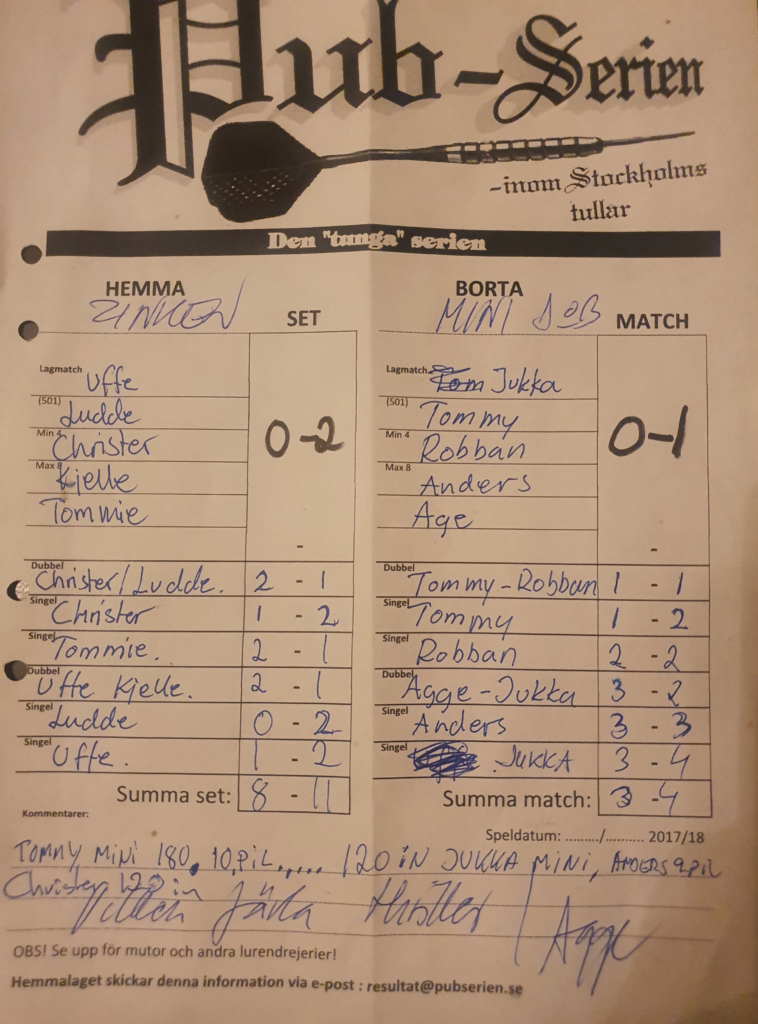 Pub-Serien
-inom Stockholms
tullar
Den "tunga" serien
HEMMA BORTA
ZINKEN SET MINI MATCH
Lagmatch Uffe Lagmatch Jukka
(501) Ludde 0-2 (501) Tommy 0-1
Min 4 Christer Min 4 Robban
Max 8 Kjelle Max 8 Anders
Tommie Age
- -
Dubbel Christer/Ludde. 2 - 1 Dubbel Tommy-Robban 1 - 1
Singel Christer 1 - 2 Singel Tommy 1 - 2
Singel Tommie. 2 - 1 Singel Robban 2 - 2
Dubbel Uffe Kjelle. 2 - 1 Dubbel Agge-Jukka 3 - 2
Singel Ludde 0 - 2 Singel Anders 3 - 3
Singel Uffe. 1 - 2 Singel JUKKA 3 - 4
Summa set: 8 - 11 Summa match: 3 - 4
Kommentarer:
Speldatum: ........./.......... 2017/18
TOMMY MINI 180, 10,PIL,.... 120 IN JUKKA MINI, ANDERS 9 PIL
Christer 120 in
Vilken Jävla thriller / Agge
OBS! Se upp för mutor och andra lurendrejerier!
Hemmalaget skickar denna information via e-post : resultat@pubserien.se